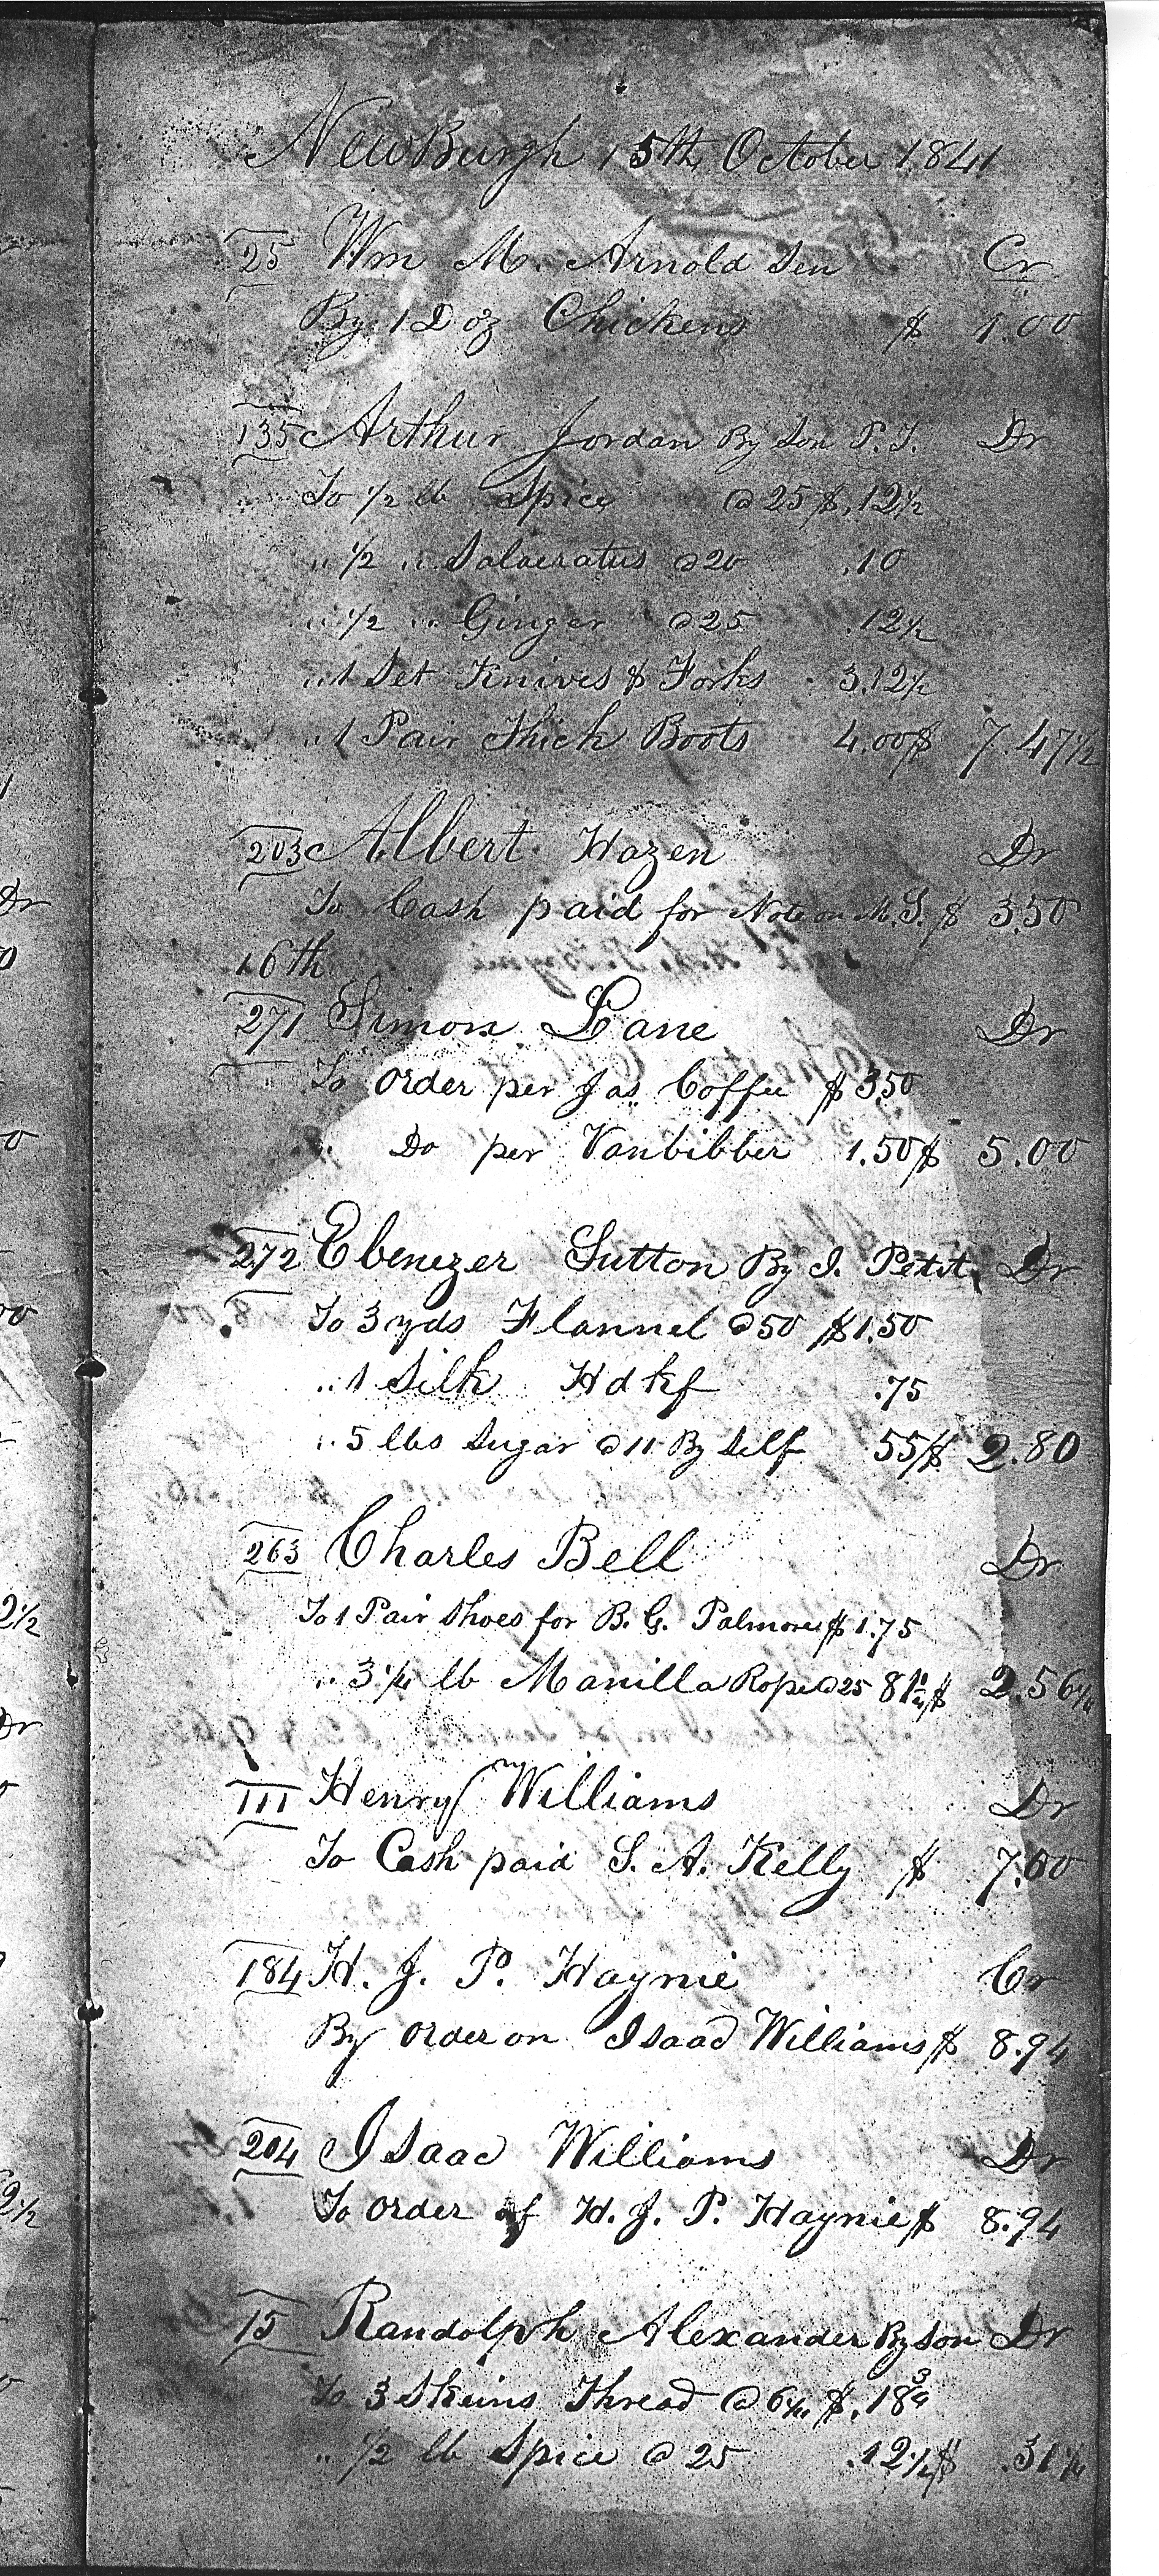 NewBurgh 15th October 1841
25 Wm M. Arnold Sen Cr
By 1 Doz Chickens $ 1.00
135 Arthur Jordan By Son P. J. Dr
To ½ lb Spice @ 25 $.12½
" ½ " Salaeratus @ 20 .10
" ½ " Ginger @ 25 .12½
" 1 Set Knives & Forks 3.12½
" 1 Pair Thick Boots 4.00 $ 7.47½
203 Albert Hazen Dr
To Cash paid for Note on M. S. $ 3.50
16th
271 Simon Lane Dr
To order per Jas Coffee $ 3.50
" Do per Vanbibber 1.50 $ 5.00
272 Ebenezer Sutton By I. Petit Dr
To 3 yds Flannel @ 50 $ 1.50
" 1 Silk Hdkf .75
" 5 lbs Sugar @ 11 By Self 55 $ 2.80
263 Charles Bell Dr
To 1 Pair Shoes for B. G. Palmore $ 1.75
" 3¼ lb Manilla Rope @ 25 81¼ $ 2.56¼
111 Henry Williams Dr
To Cash paid S. A. Kelly $ 7.00
184 H. J. P. Haynie Cr
By order on Isaac Williams $ 8.94
204 Isaac Williams Dr
To order of H. J. P. Haynie $ 8.94
15 Randolph Alexander By Son Dr
To 3 Skeins Thread @ 6¼ $.18¾
" ½ lb Spice @ 25 .12½ $ .31¼